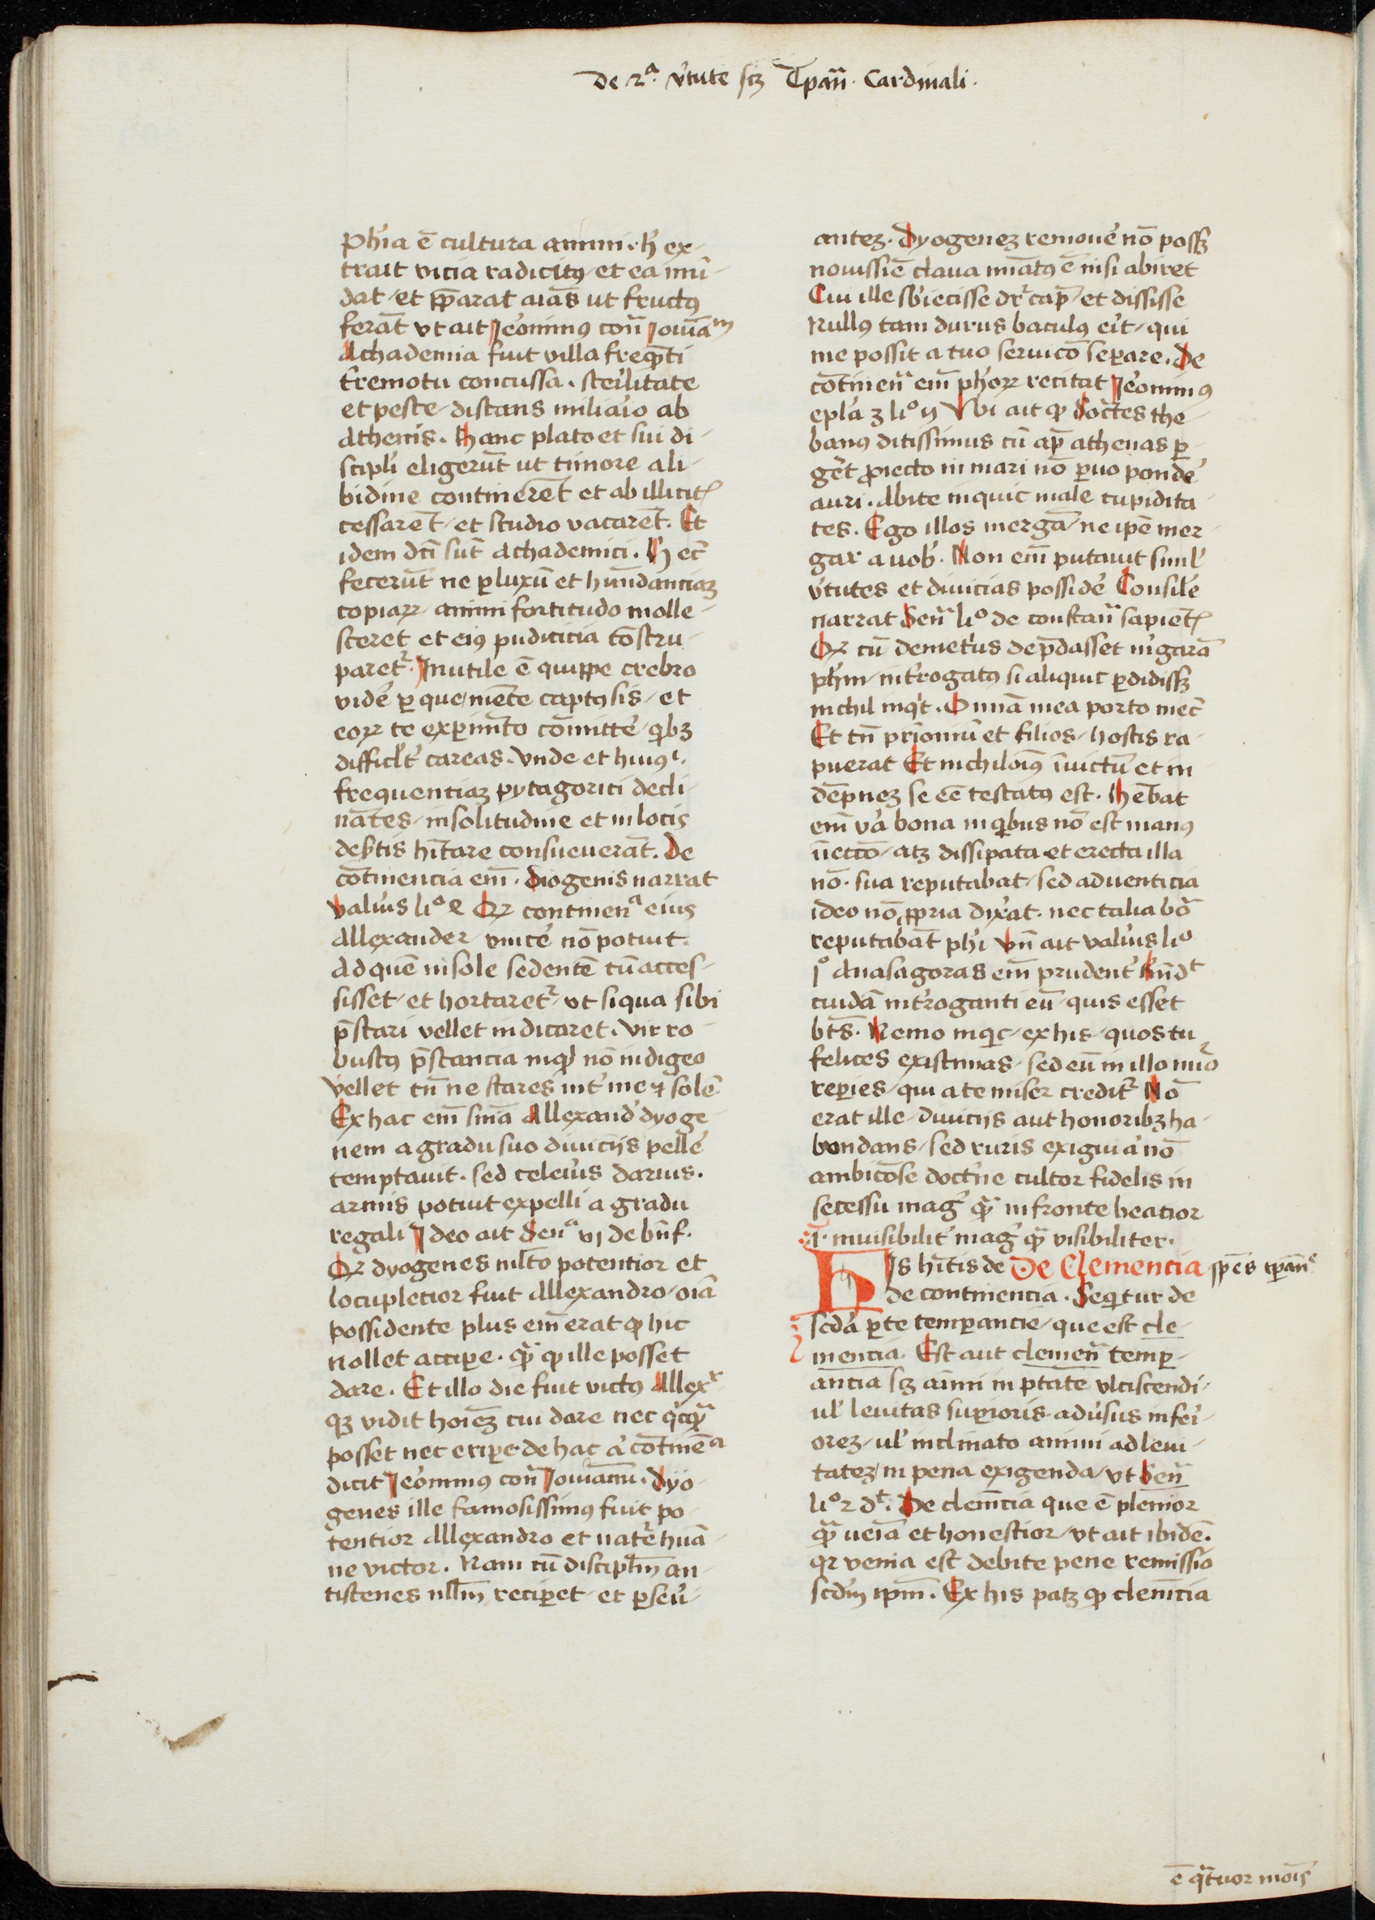 De 2ᵃ. v̓tute scꝫ Tꝑan̄. Cardinali.
Ph̓ia ē cultura animi. h̓ ex-
trait vicia radicitꝰ et ea mū-
dat / et p̄parat aīas ut fructꝰ
ferāt vt ait Jeronimꝰ con̄ Jouiāᵐ
Achademia fuit villa freq̄nti
t̓remotu concussa. sterilitate
et peste / distans miliaīo ab
Athenis. Hanc plato et sui di-
scipl̓i eligerūt ut timore a li-
bidine continerēt et ab illicit̓
cessarēt / et studio vacarēt. Et
idem dc̄i sūt Achademici. Hec̄
fecerūt ne ꝑ luxū et hūndanciaꝫ
copiaꝝ animi fortitudo molle-
sceret et eiꝰ pudicicia cōstru-
paretᵣ. Jnutile ē quippe crebro
vidē ꝑ que mēte captꝰ sis / et
eoꝝ te exꝑimēto cōmittē / qⁱbꝫ
difficl̓t careas. Vnde et huiꝰ.
frequentiaꝫ pytagorici decli-
nātes / in solitudine et in locis
deẜtis hītare consueuerāt. De
cōtinencia em̄. diogenis narrat
valiu̓s liᵒ 4 Qꝛ continenᵃ eius
Allexander vnicē nō potuit.
Ad quē in sole sedentē cū acces-
sisset / et hortaretᵣ / vt si qua sibi
p̄stari vellet indicaret. Vir ro-
bustꝰ p̄stancia inqͥ nō indigeo
vellet tn̄ ne stares int̓ me & solē
Ex hac em̄ sm̄a Allexand̓ dyoge
nem a gradu suo diuiciis pellē
temptauit. sed celeiu̓s darius.
armis potuit expelli a gradu
regali Jdeo ait Senᵃ vj de bn̄f.
Qꝛ dyogenes ml̓to potentior et
locupletior fuit Allexandro / oīa
possidente plus em̄ erat qd hic
nollet accipe. qᷓ qd ille posset
dare. Et illo die fuit victꝰ Allexʳ
qꝫ vidit hoīeꝫ cui dare nec qⁱcqᷓ
posset nec eripe. de hac a̓ cōtinēᵃ
dicit Jeronimꝰ con̄ Jouianū. dyo-
genes ille famosissimꝰ fuit po-
tentior Allexandro et natr̄e huā-
ne victor. Nam cū discipl̄m an-
tistenes nll̄m recipet / et ꝑseu̓-
anteꝫ. Dyogeneꝫ remouē nō possꝫ
nouissiē claua mīatꝰ ē nisi abiret
Cui ille sb̓iecisse dr̄ cap̄ / et dississe
Nullꝰ tam durus baculꝰ eīt / qui
me possit a tuo seruicō seꝑare. De
cōtinen̄ em̄ ph̓oꝝ recitat Jeronimꝰ
epl̓a 3 liᵒ ij Vbi ait qd Socrates the-
banꝰ ditissimus cū ap̄ athenas ꝑ-
gēt ꝓiecto in mari nō ꝑuo pondē
auri. Abite inquit male cupidita-
tes. Ego illos mergā / ne ipē mer-
gar a vob̓. Non em̄ putauit siml̓
v̓tutes et diuicias possidē Consilē
narrat Sen̄ liᵒ de constan̄ sapient̓
Qꝛ cū demetiu̓s dep̄dasset migarā
ph̄m / int̓rogatꝰ si aliquit ꝑdidissꝫ
nichil inqͥt. Omnia mea porto mec̄
Et tn̄ p̄rioniū et filios / hostis ra-
puerat Et nichilomīꝰ īuictū et in-
dēpneꝫ se eē testatꝰ est. Hēbat
em̄ va̓ bona in qⁱbus nō est manꝰ
īieccō / atꝫ dissipata et erecta illa
nō. sua reputabat / sed aduenticia
ideo nō ꝓpria dix̓at. nec talia bō
reputabāt ph̓i vn̄ ait valiu̓s liᵒ
jᵒ Anasagoras em̄ prudent̓ Rn̄dᵗ
cuidā int̓roganti eū / quis esset
bt̄s. Nemo inqͥt / ex his / quos tu
felices existimas / sed eū in illo nūo
reꝑies / qui a te miser creditᵣ Nō
erat ille / diuiciis aut honoribꝫ ha-
bondans / sed ruris exigui a̓ nō
ambicōse doct̓ne cultor fidelis in
secessu mag̓ qᷓ in fronte beatior
.i. inuisibilit̓ mag̓ qᷓ visibiliter.
His hītis de De Clementia sp̄es tꝑanᵉ
de continencia. Seqⁱtur de
sc̄da ꝑte temꝑancie / que est cle-
mencia. Est aut clemen̄ temꝑ-
ancia scꝫ animi in ptāte vlciscendi /
ul̓ leuitas suꝑioris adu̓sus infeī-
oreꝫ / ul̓ inclinato animi ad leui-
tateꝫ in pena exigenda / vt Sen̄
liᵒ 2 dᵗ. De clemēcia que ē plenior
qᷓ ueīa et honestior / vt ait ibidē.
qꝛ venia est debite pene remissio
scd̄m ip̄m. Ex his patꝫ qd clemēcia
ē qᷓtuor mōis